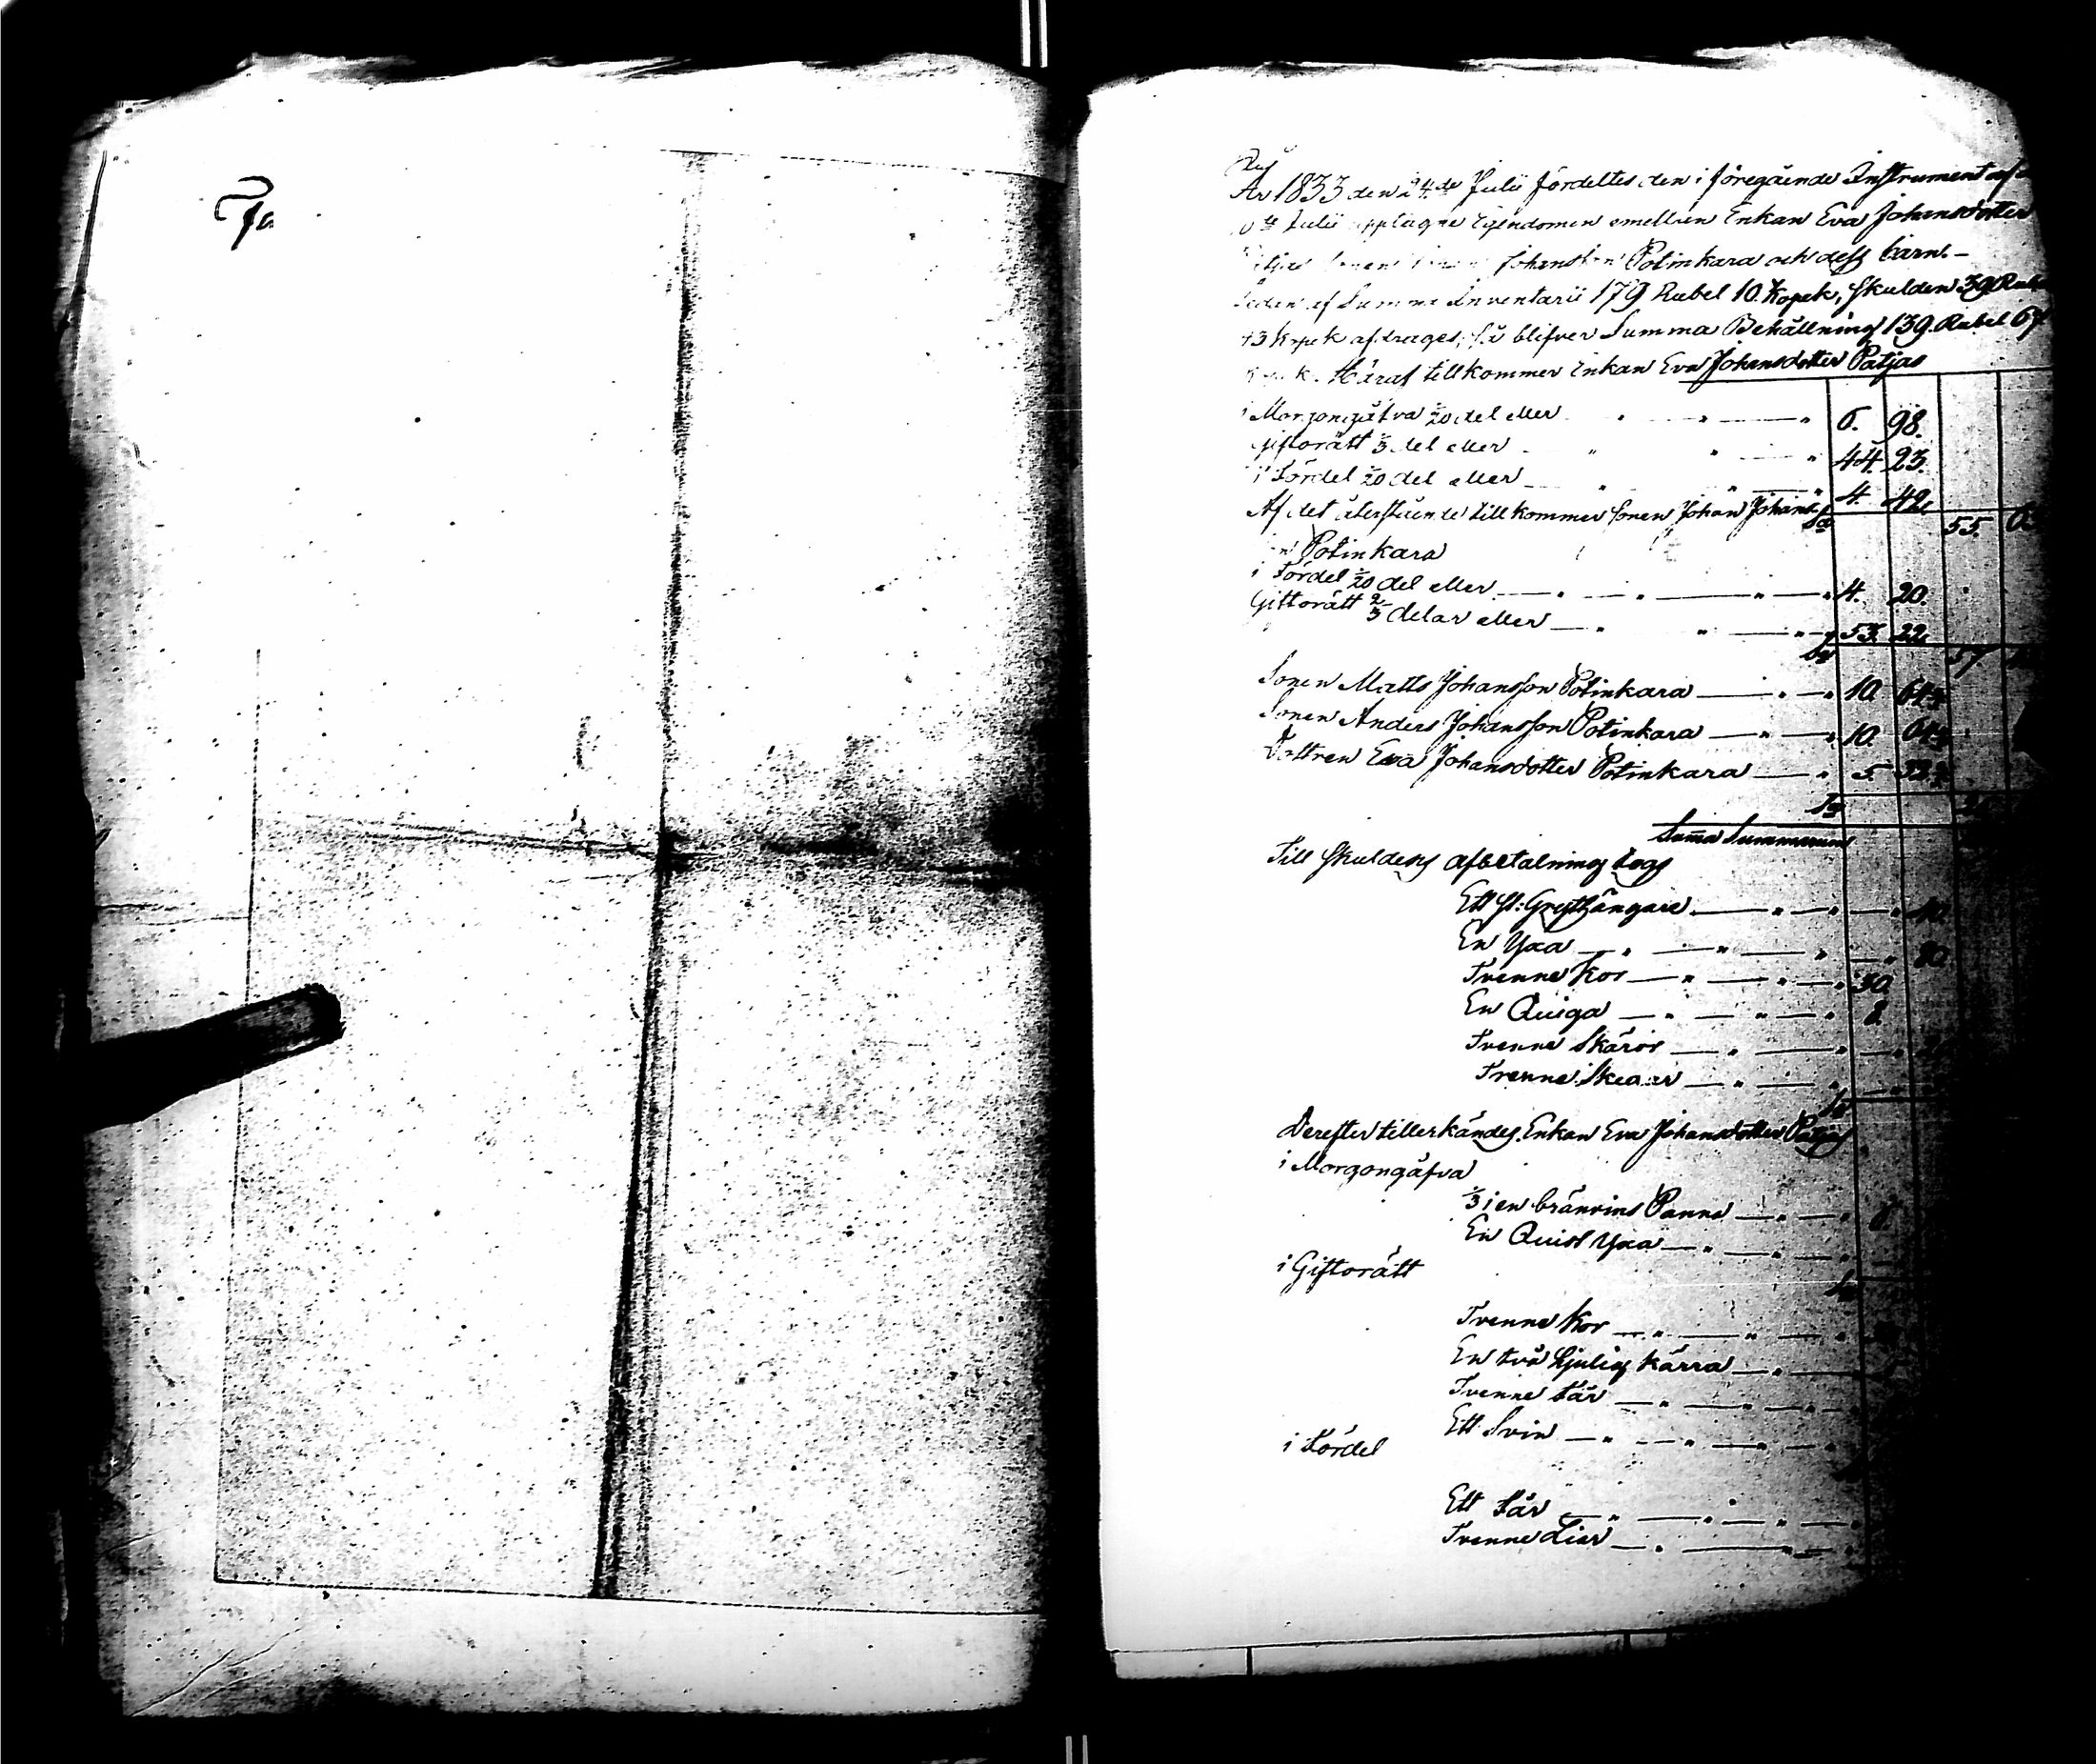 År 1833 den 24de Julii fördeltes den i föregående Instrument af
Julii upptagne Egendomen emellan Enkan Eva Johansdotter
Johansson Potinkara och dess barn. –
Sedan af Summa Inventarii 179 Rubel 10 Kopek, Skulden 39 Rubel
43 Kopek afdrages, så blifver Summa Behållning 139 Rubel 67
Kopek. Häraf tillkommer Enkan Eva Johansdotter Patjas
i Morgongåfva 1/20 del eller 6. 98.
Giftorätt 1/3 del eller 44. 23.
i Fördel 1/20 del eller 4. 42.
Af det återstående tillkommer Sonen Johan Johans-
Sa 55.
son Potinkara
i Fördel 1/20 del eller 4. 20.
Giftorätt 2/3 delar eller 53. 22.
Sa 57
Sonen Matts Johansson Potinkara 10. 64
Sonen Anders Johansson Potinkara 10. 64
Dottren Eva Johansdotter Potinkara 5. 32
Sa
Summa Summarum
Till Skuldens afbetalning togs
Ett st: Grythängare 40
En Yxa 20
Tvenne Kor 30.
En Quiga 8.
Tvenne Skäror
Trenne Skedar
Sa
Derefter tillerkändes Enkan Eva Johansdotter Patjas
i Morgongåfva
1/3 i en bränvins Panna 6
En Quist Yxa
i Giftorätt
Sa
Tvenne Kor
En två hjulig Kärra
Tvenne Får
Ett Svin
i Fördel
Ett Får
Tvenne Liar